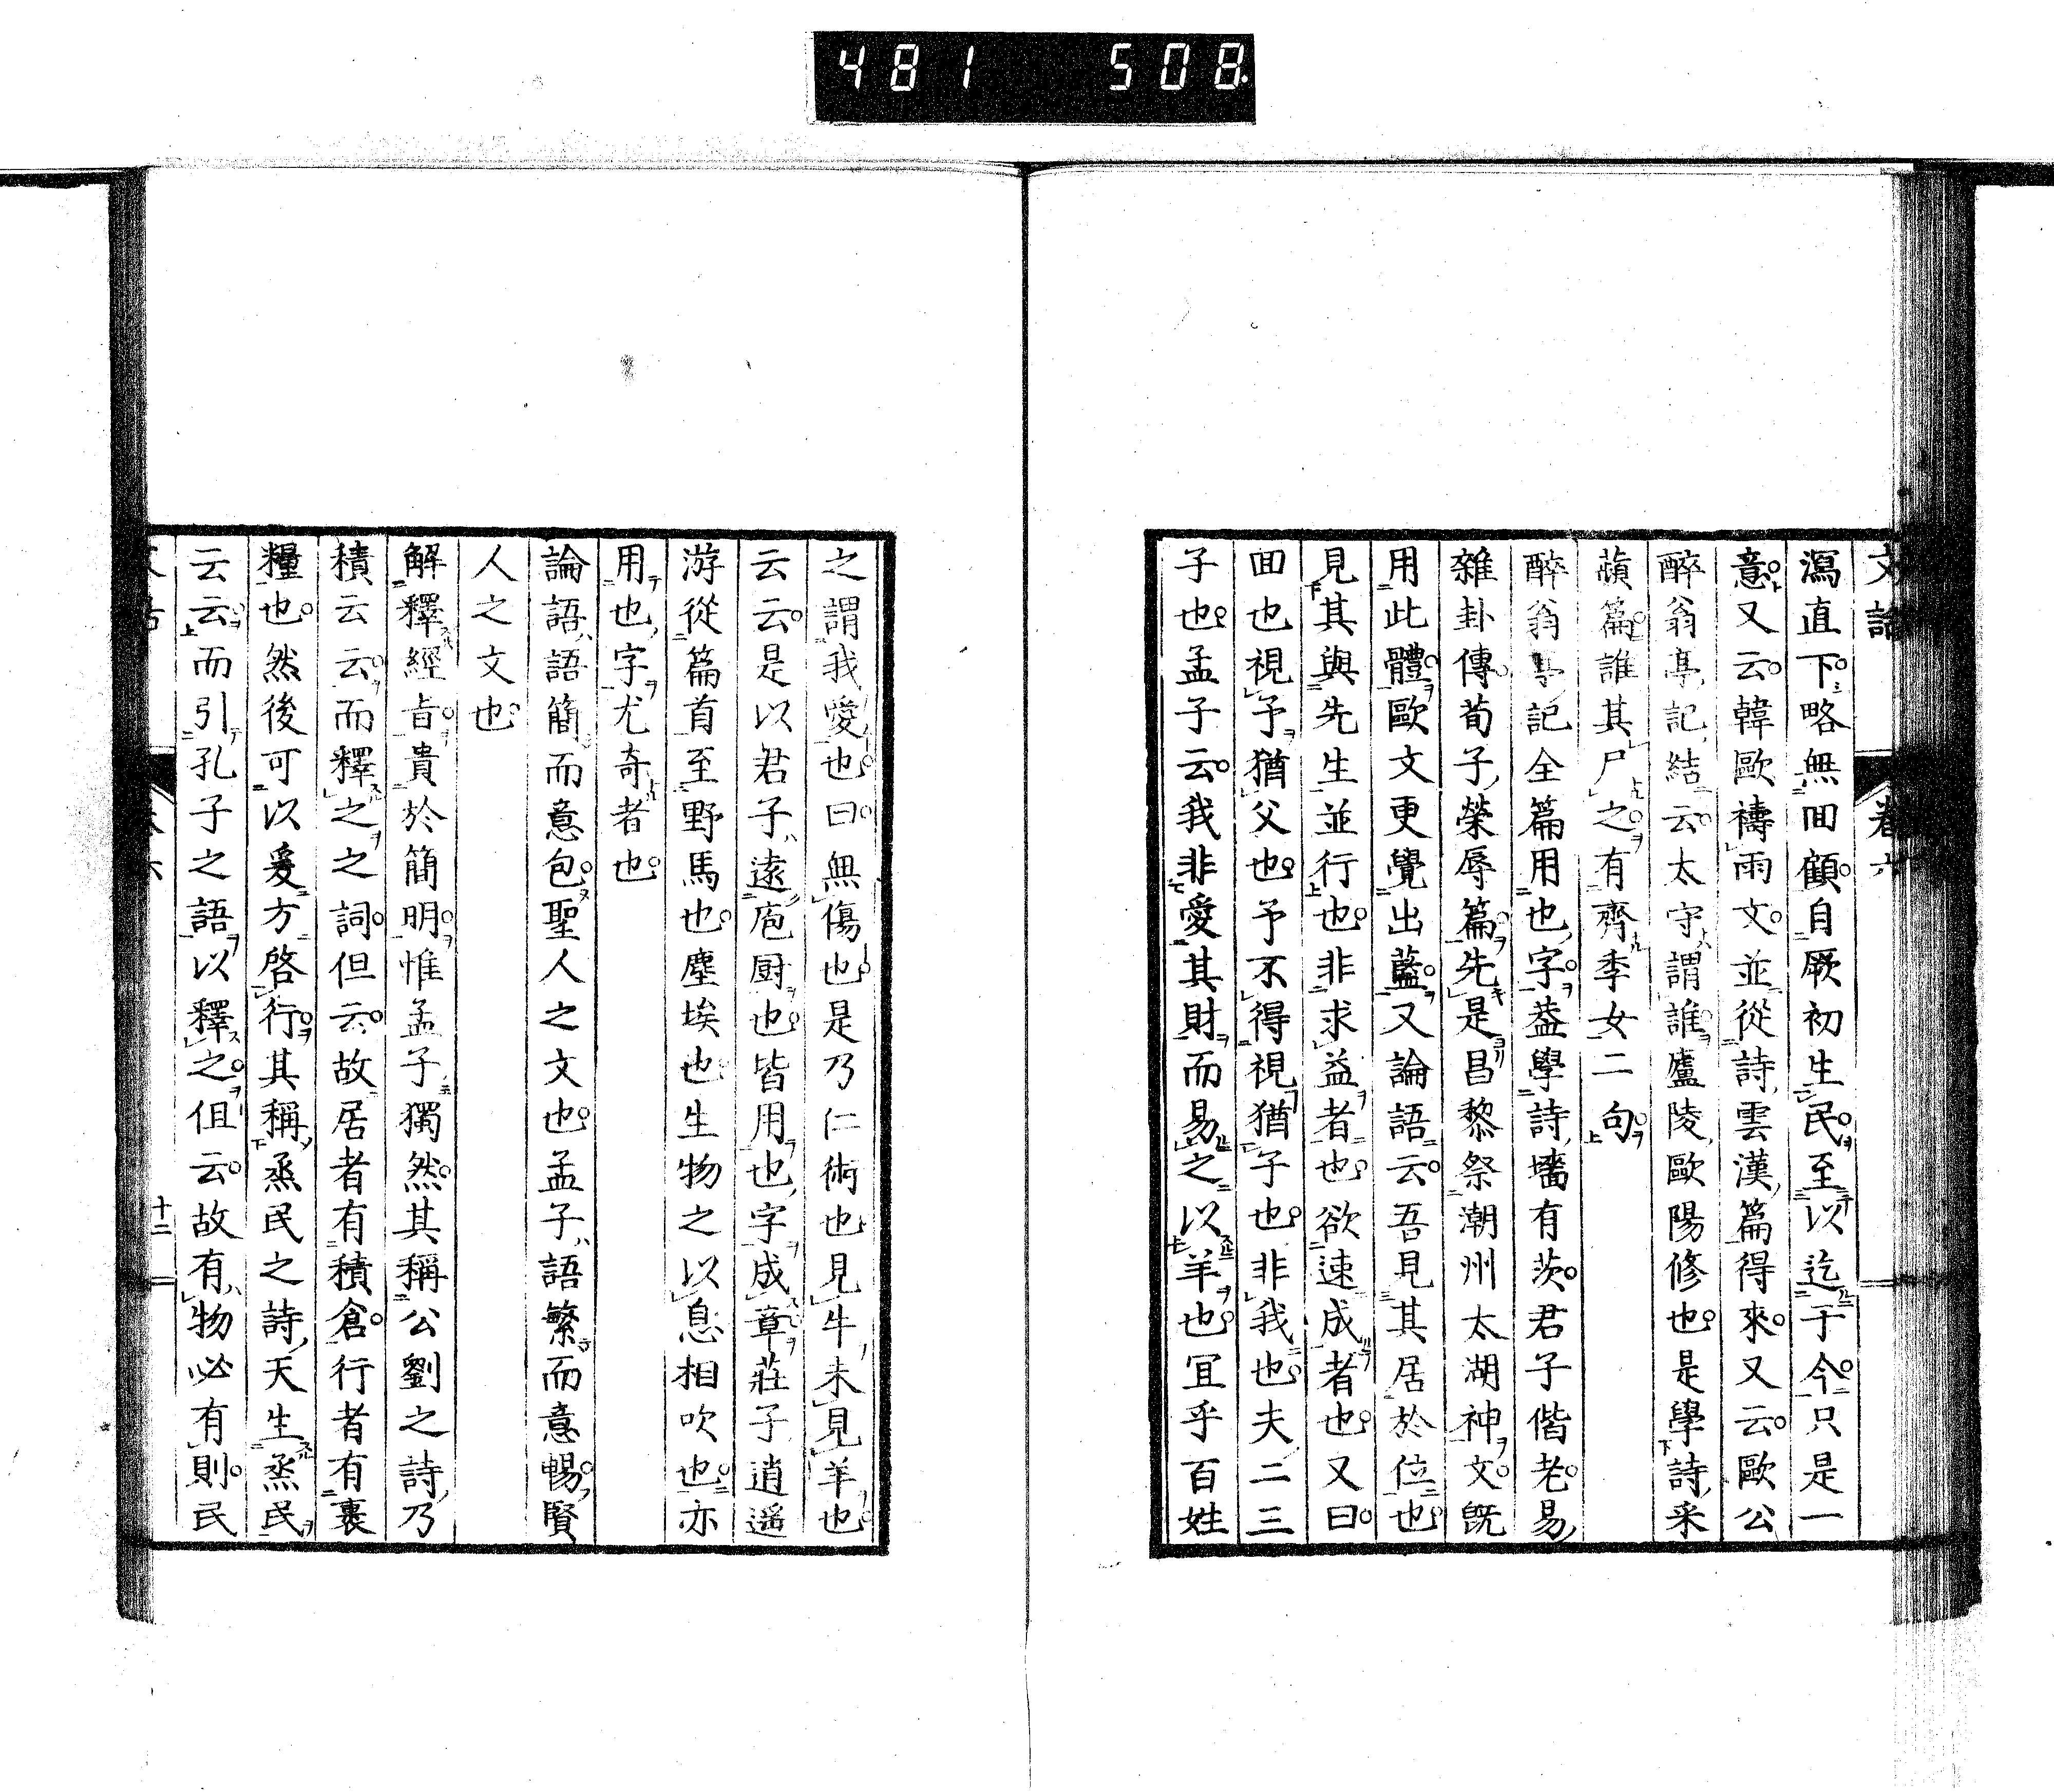 481 508
文話 卷六
瀉直下略無回顧自厥初生民至以迄于今只是一
意又云韓歐禱雨文並從詩雲漢篇得來又云歐公
醉翁亭記結云太守謂誰廬陵歐陽修也是學詩采
蘋篇誰其尸之有齊季女二句
醉翁亭記全篇用也字葢學詩墻有茨君子偕老易
雜卦傳荀子榮辱篇先是昌黎祭潮州太湖神文旣
用此體歐文更覺出藍又論語云吾見其居於位也
見其與先生並行也非求益者也欲速成者也又曰
回也視予猶父也予不得視猶子也非我也夫二三
子也孟子云我非愛其財而易之以羊也宜乎百姓
之謂我愛也曰無傷也是乃仁術也見牛未見羊也
云云是以君子遠庖厨也皆用也字成章莊子逍遥
游從篇首至野馬也塵埃也生物之以息相吹也亦
用也字尤奇者也
論語語簡而意包聖人之文也孟子語繁而意暢賢
人之文也
解釋經旨貴於簡明惟孟子獨然其稱公劉之詩乃
積云云而釋之之詞但云故居者有積倉行者有裹
糧也然後可以爰方啓行其稱烝民之詩天生烝民
云云而引孔子之語以釋之但云故有物必有則民
十二